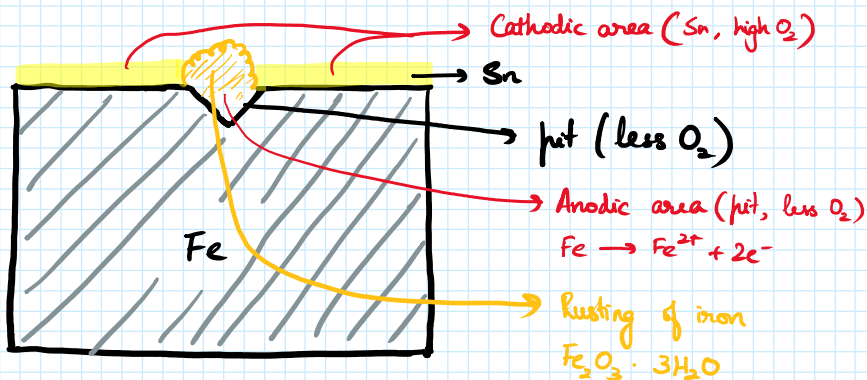 Cathodic area (Sn, high O₂)
Sn
pit (less O₂)
Anodic area (pit, less O₂)
Fe → Fe²⁺ + 2e⁻
Fe
Rusting of iron
Fe₂O₃ · 3H₂O